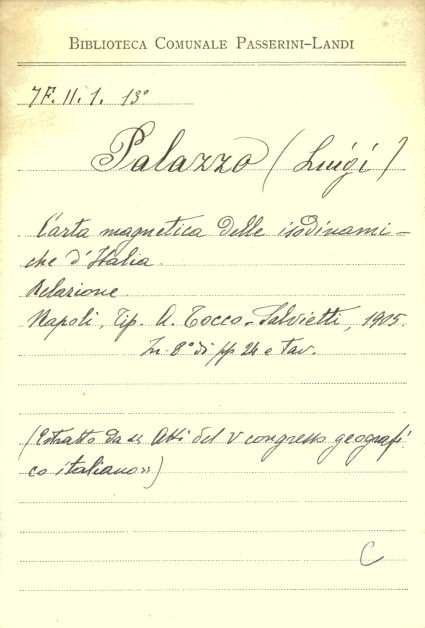 BIBLIOTECA COMUNALE PASSERINI-LANDI
7F. II. 1. 13°
Palazzo (Luigi)
Carta magnetica delle isodinami-
che d'Italia.
Relazione
Napoli, Tip. A. Tocco-Salvietti, 1905.
In-8° di pp 24 e tav.
(Estratto da « Atti del V congresso geografi
co italiano»)
C